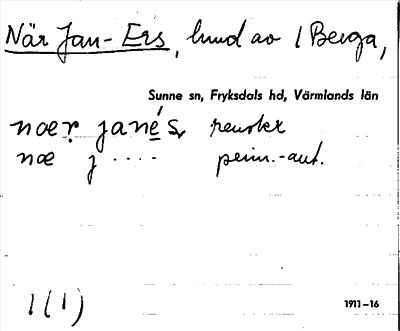 När Jan-Ers, lmd av 1 Berga,
Sunne sn, Fryksdals hd, Värmlands län
noeṛ janés, renskr
næ j.... prim.-aut.
1(1)
1911–16